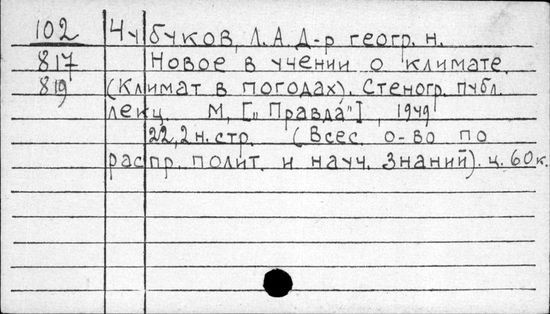 102 Чубуков, Л.А. Д-р геогр. н.
817 Новое в учении о климате.
819 (Климат в погодах). Стеногр. публ.
лекц. М, [„Правда"], 1949
22,2н. стр. (Всес. о-во по
распр. полит. и науч. знаний). ц. 60к.